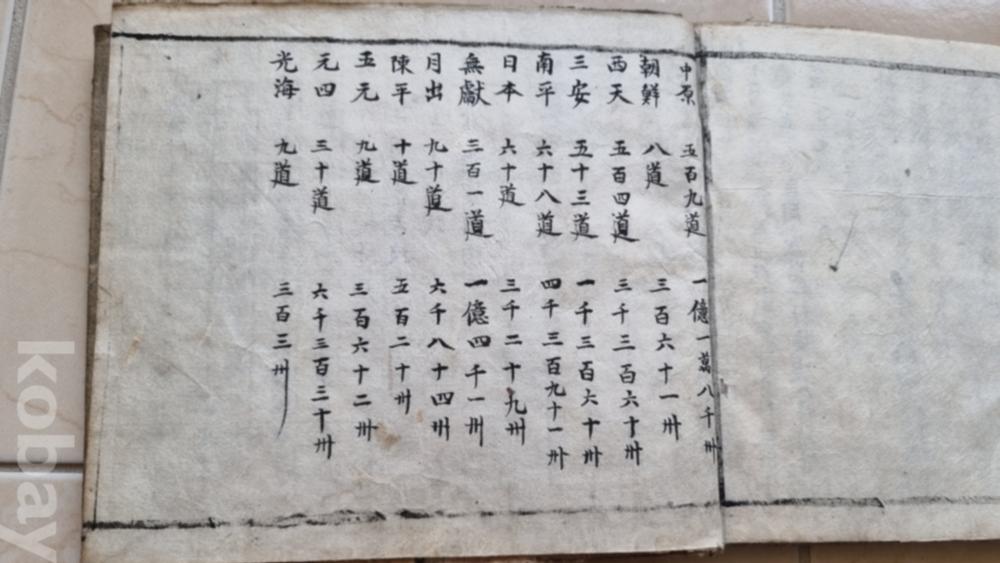 中原 五百九道 一億一萬八千卅
朝鮮 八道 三百六十一卅
西天 五百四道 三千三百六十卅
三安 五十三道 一千三百六十卅
南平 六十八道 四千三百九十一卅
日本 六十道 三千二十九卅
無獻 三百一道 一億四千一卅
月出 九十道 六千八十四卅
陳平 十道 五百二十卅
五元 九道 三百六十二卅
元四 三十道 六千三百三十卅
光海 九道 三百三卅
kobay